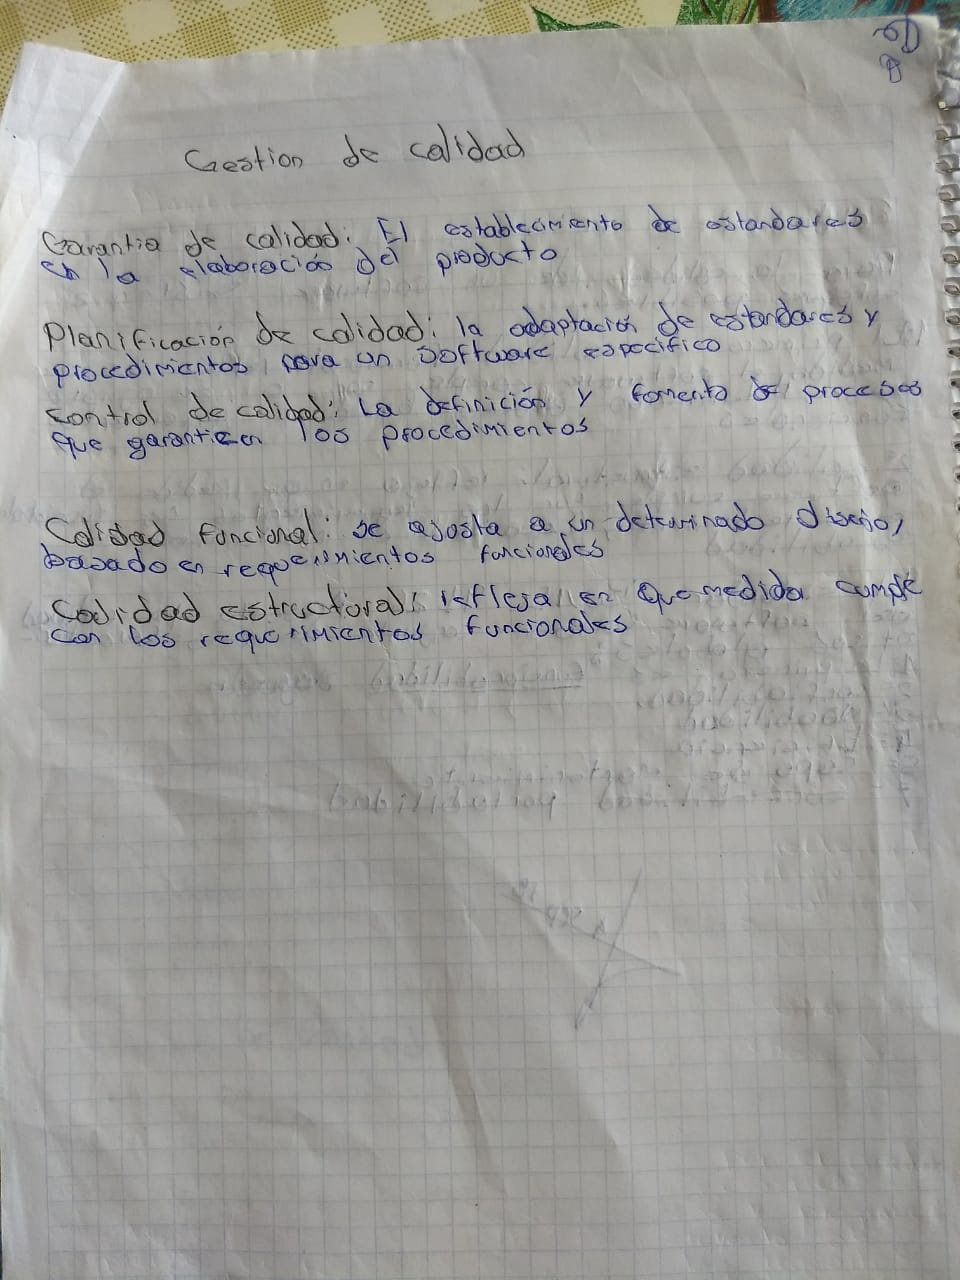 6D
Gestion de calidad
Garantia de calidad: El establecimiento de estandares
en la elaboración del producto
Planificación de calidad: la adaptación de estandares y
procedimientos para un software especifico
control de calidad: La definición y fomento de procesos
que garanticen los procedimientos
Calidad funcional: se ajusta a un determinado diseño,
basado en requerimientos funcionales
Calidad estructural: refleja en que medida cumple
con los requerimientos funcionales